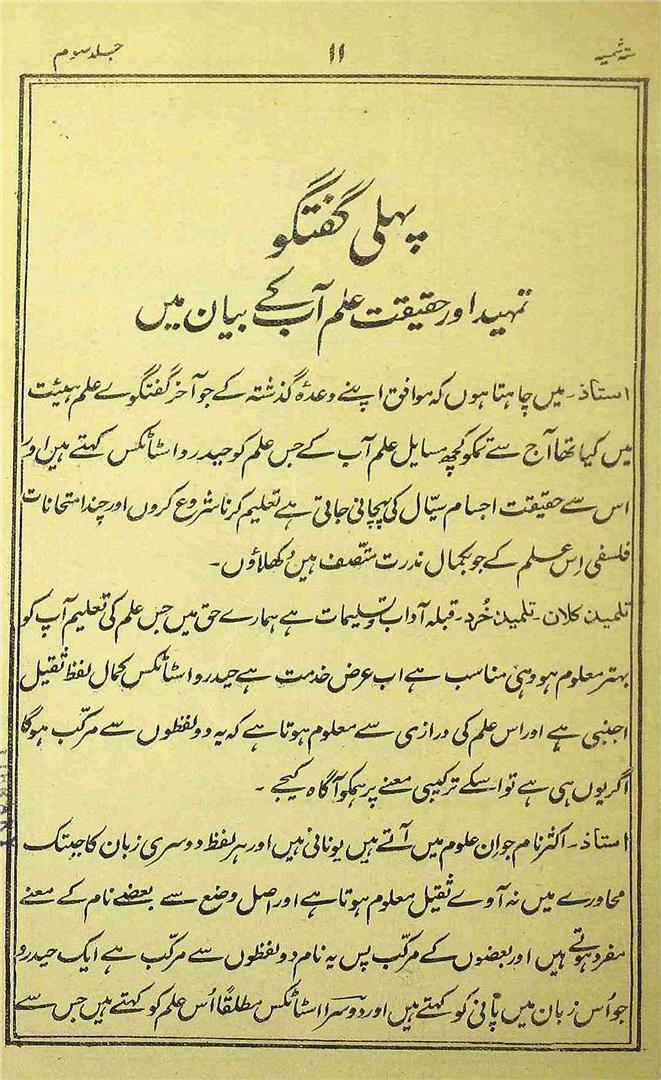 ستہ شمسیہ ۱۱ جلد سوم
پہلی گفتگو
تمہید اور حقیقت علم آب کے بیان میں
استاذ۔ میں چاہتا ہوں کہ موافق اپنے وعدۂ گذشتہ کے جو آخر گفتگوے علم ہیئت
میں کیا تھا آج سے تمکو کچھ مسایل علم آب کے جس علم کو حیدرو اسٹاٹکس کہتے ہیں اور
اس سے حقیقت اجسام سیّال کی پہچانی جاتی ہے تعلیم کرنا شروع کروں اور چند امتحانات
فلسفی اِس علم کے جو بکمال ندرت متّصف ہیں دُکھلاؤں۔
تلمیذ کلان۔ تلمیذ خُرد۔ قبلہ آداب و تسلیمات ہے ہمارے حق میں جس علم کی تعلیم آپ کو
بہتر معلوم ہو وہی مناسب ہے اب عرض خدمت ہے حیدرو اسٹاٹکس کمال لفظ ثقیل
اجنبی ہے اور اس علم کی درازی سے معلوم ہوتا ہے کہ یہ دو لفظوں سے مرکّب ہوگا
اگر یوں ہی ہے تو اسکے ترکیبی معنے پر ہمکو آگاہ کیجے۔
استاذ۔ اکثر نام جو اِن علوم میں آتے ہیں یونانی ہیں اور ہر لفظ دوسری زبان کا جبتک
محاورے میں نہ آوے ثقیل معلوم ہوتا ہے اور اصل وضع سے بعضے نام کے معنے
مفرد ہوتے ہیں اور بعضوں کے مرکّب پس یہ نام دو لفظوں سے مرکّب ہے ایک حیدرو
جو اُس زبان میں پانی کو کہتے ہیں اور دوسرا اسٹاٹکس مطلقًا اُس علم کو کہتے ہیں جس سے